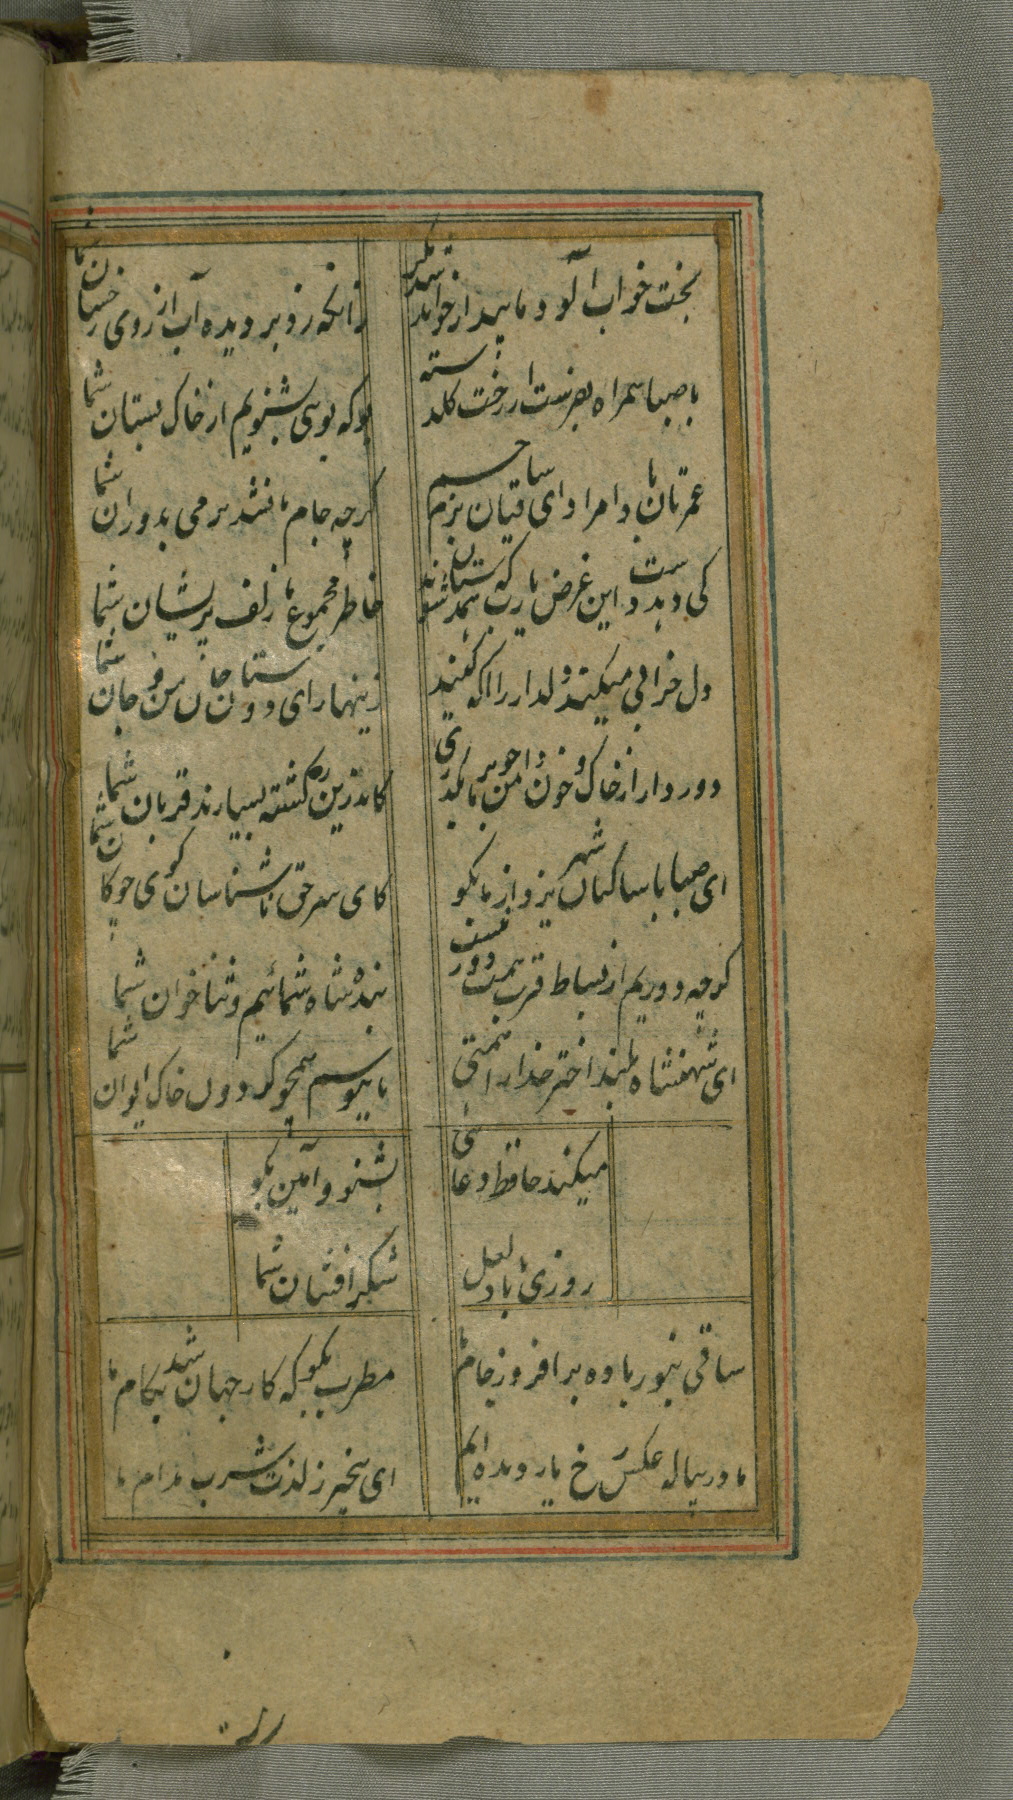 بخت خواب آلود ما بیدار خواهد شد مگر
زانکه زد بر دیده آب از روی رخشان شما
با صبا همراه بفرست از رخت گلدسته
بو که بوی بشنویم از خاک بستان شما
عمرتان بادا مرا دای ساقیان بزم جم
گرچه جام ما نشد پر می بدوران شما
کی دهد دست این غرض یا رب که همدستان شوند
خاطر مجموع ما زلف پریشان شما
دل خرابی میکند دلدار را آگه کنید
زینهار ای دوستان جان من و جان شما
دور دار از خاک و خون دامن چو بر ما بگذری
کاندرین ره کشته بسیارند قربان شما
ای صبا با ساکنان شهر یزد از ما بگو
کای سر حق ناشناسان گوی چوکان شما
گرچه دوریم از بساط قرب همت دور نیست
بنده شاه شمائیم و ثناخوان شما
ای شهنشاه بلند اختر خدا را همتی
تا ببوسم همچو گردون خاک ایوان شما
میکند حافظ دعائی
بشنو و آمین بگو
روزیٔ ما باد لعل
شکر افشان شما
ساقی بنور باده بر افروز جام ما
مطرب بگو که کار جهان شد بکام ما
ما در پیاله عکس رخ یار دیده ایم
ای بیخبر ز لذت شرب مدام ما